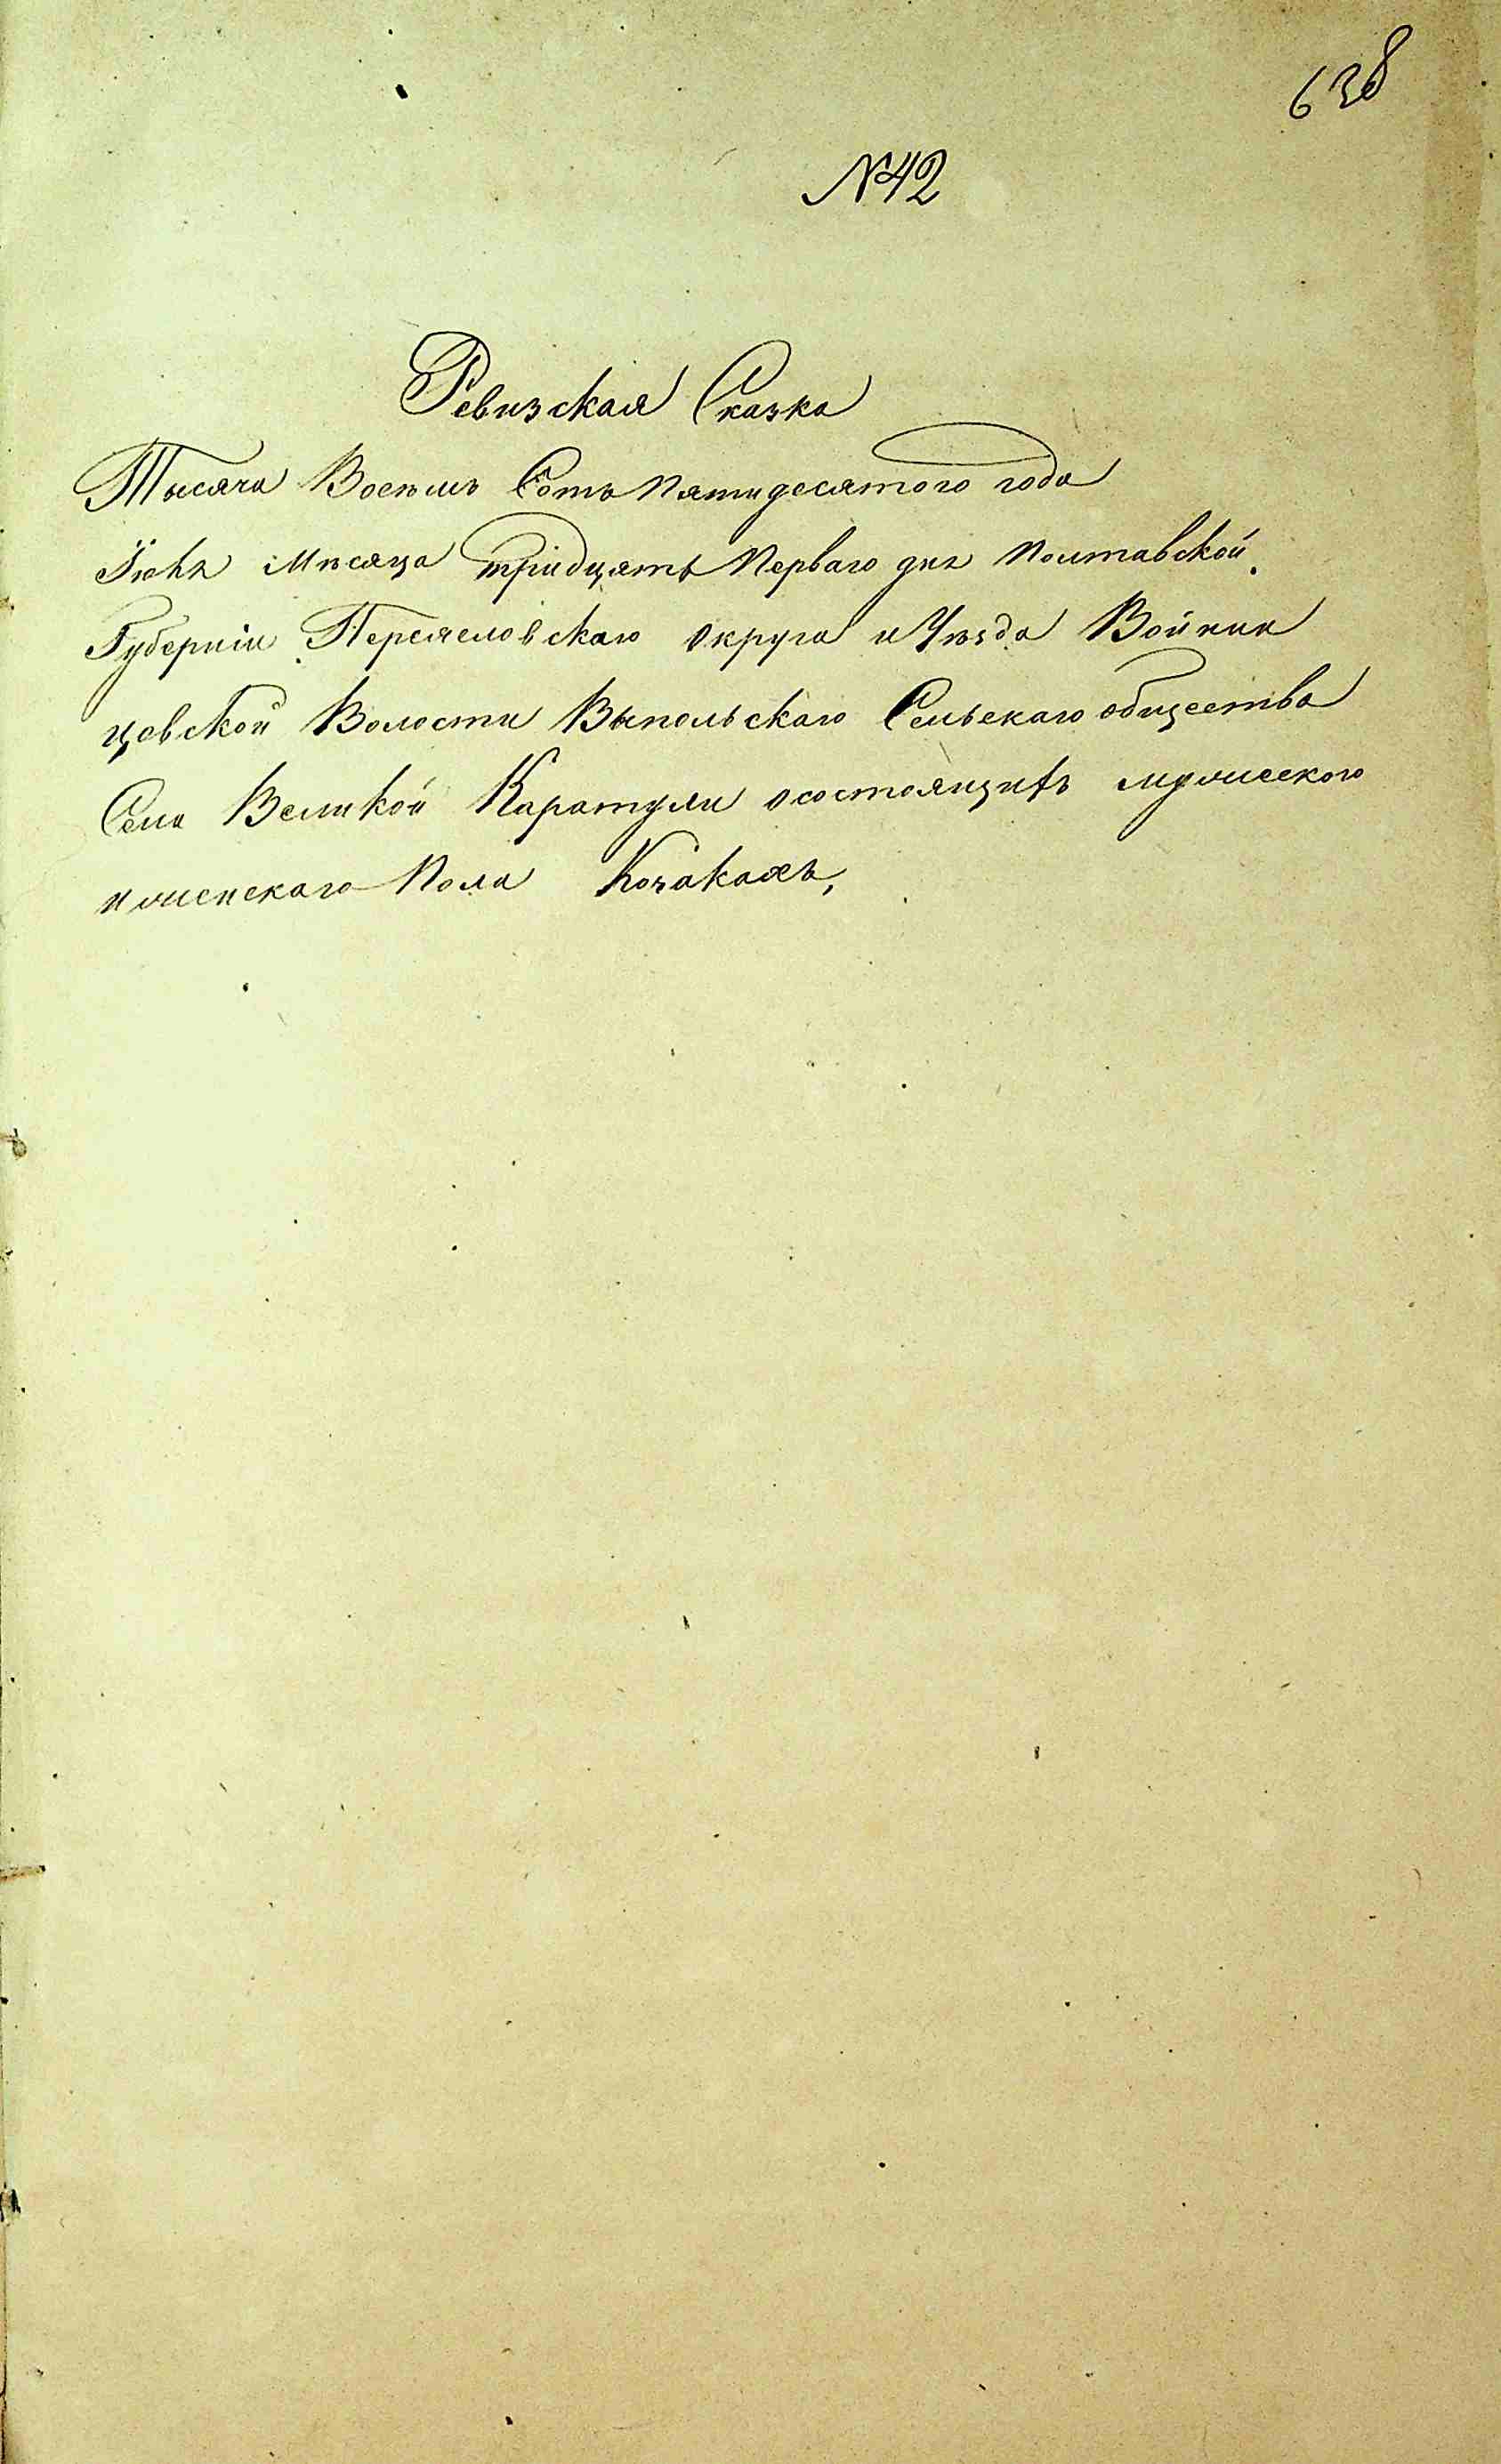 638
№42
Ревизская Сказка
Тысяча Восемь Сотъ Пятидесятого года
Мѣсяца тридцять Перваго дня Полтавской
Губерніи Переяславскаго округа и Уѣзда Войнин
цовской Волости Выпольскаго Сельскаго общества
Села Великой Каратули о состоящихъ мужеского
и женскаго Пола Козакахъ,